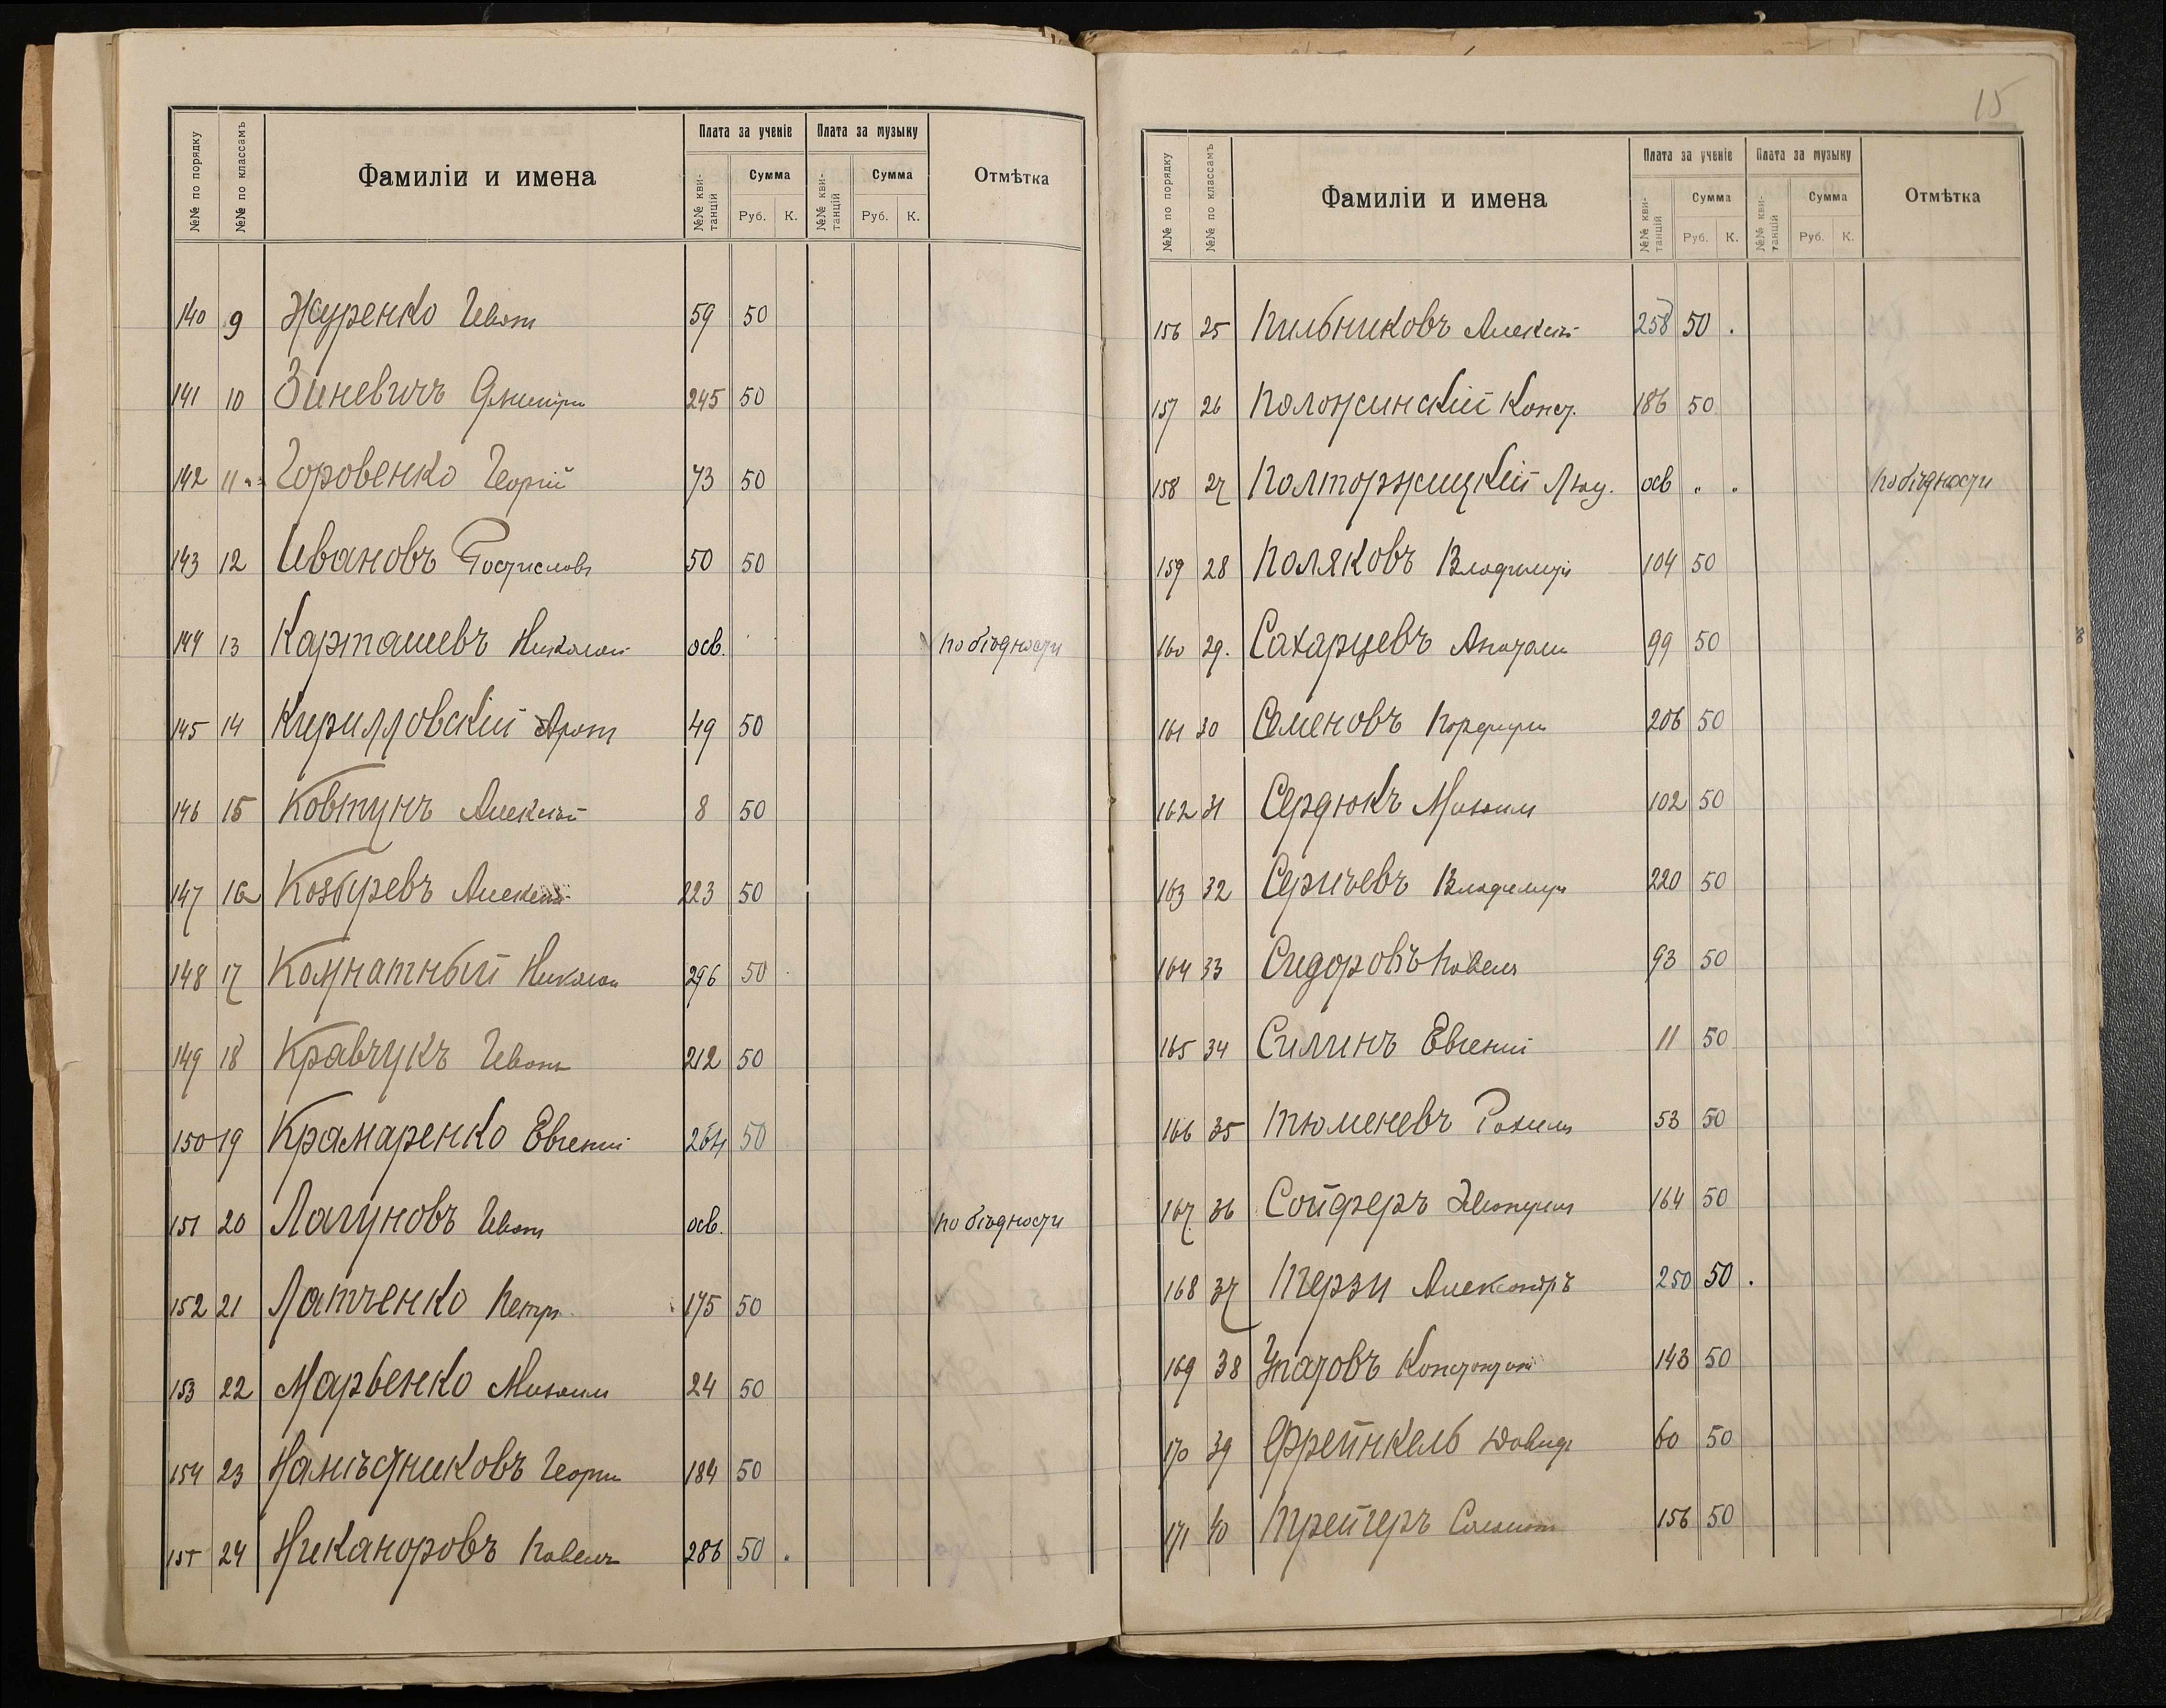 №№ по порядку
№№ по классамъ
Фамиліи и имена
Плата за ученіе
Плата за музыку
Отмѣтка
№№ квитанцій
Сумма
№№ квитанцій
Сумма
Руб. К.
Руб. К.
140 9 Журенко Иванъ 59 50
141 10 Зиневичъ Дмитрій 245 50
142 11 Горовенко Георгій 73 50
143 12 Ивановъ Ростиславъ 50 50
144 13 Карташевъ Николай осв. по бѣдности
145 14 Кирилловскій 49 50
146 15 Ковтунъ Алексѣй 8 50
147 16 Козыревъ Алексѣй 223 50
148 17 Комнатный Николай 296 50
149 18 Кравчукъ Иванъ 212 50
150 19 Крамаренко Евгеній 264 50
151 20 Лагуновъ Иванъ осв. по бѣдности
152 21 Латченко Петръ 175 50
153 22 Марьенко Михаилъ 24 50
154 23 Намѣсниковъ Георгій 184 50
155 24 Никаноровъ Павелъ 286 50 .
15
№№ по порядку
№№ по классамъ
Фамиліи и имена
Плата за ученіе
Плата за музыку
Отмѣтка
№№ квитанцій
Сумма
№№ квитанцій
Сумма
Руб. К.
Руб. К.
156 25 Пильниковъ Алексѣй 258 50 .
157 26 Положинскій Конст. 186 50
158 27 Полторжицкій осв . . по бѣдности
159 28 Поляковъ Владиміръ 104 50
160 29. Сахарцевъ Анатолій 99 50
161 30 Семеновъ Порфирій 206 50
162 31 Сердюкъ Михаилъ 102 50
163 32 Сергѣевъ Владиміръ 220 50
164 33 Сидоровъ Павелъ 93 50
165 34 Силинъ Евгеній 11 50
166 35 Тюменевъ 53 50
167 36 Сойферъ 164 50
168 37 Терзи Александръ 250 50 .
169 38 Упатовъ Константинъ 143 50
170 39 Френкель Давидъ 60 50
171 40 Трейгеръ 156 50